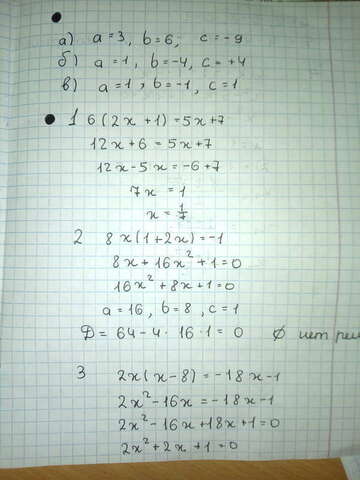 а) a=3, b=6, c=-9
б) a=1, b=-4, c=+4
в) a=1, b=-1, c=1
1 6(2x+1)=5x+7
12x+6=5x+7
12x-5x=-6+7
7x=1
x=1/7
2 8x(1+2x)=-1
8x+16x²+1=0
16x²+8x+1=0
a=16, b=8, c=1
D=64-4·16·1=0 Ø нет реш
3 2x(x-8)=-18x-1
2x²-16x=-18x-1
2x²-16x+18x+1=0
2x²+2x+1=0